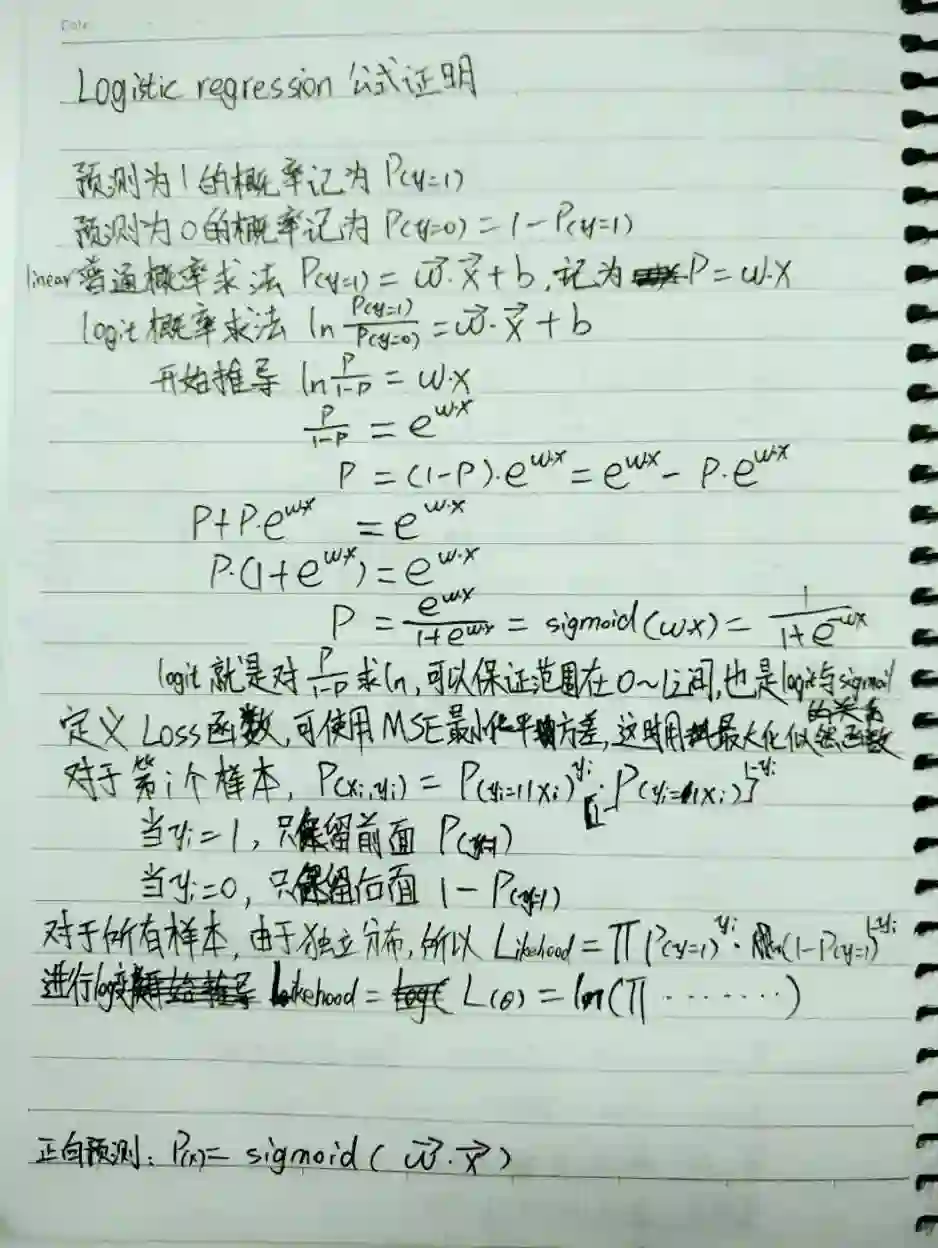 Date
Logistic regression 公式证明
预测为1的概率记为 P(y=1)
预测为0的概率记为 P(y=0) = 1 - P(y=1)
linear 普通概率求法 P(y=1) = w⃗·x⃗ + b, 记为 P = w·x
logit 概率求法 ln P(y=1)/P(y=0) = w⃗·x⃗ + b
开始推导 ln P/(1-P) = w·x
P/(1-P) = e^(w·x)
P = (1-P)·e^(w·x) = e^(w·x) - P·e^(w·x)
P + P·e^(wx) = e^(w·x)
P·(1+e^(w·x)) = e^(w·x)
P = e^(wx)/(1+e^(wx)) = sigmoid(wx) = 1/(1+e^(-wx))
logit 就是对 P/(1-P) 求ln, 可以保证范围在0~1之间, 也是logit与sigmoid的关系
定义 Loss函数, 可使用MSE最小化平均方差, 这时用最大化似然函数
对于第i个样本, P(xi,yi) = P(yi=1|xi)^(yi)·[1-P(yi=1|xi)]^(1-yi)
当yi=1, 只保留前面 P(y=1)
当yi=0, 只保留后面 1-P(y=1)
对于所有样本, 由于独立分布, 所以 Likehood = ∏ P(y=1)^(yi)·(1-P(y=1))^(1-yi)
进行log Likehood = L(θ) = ln(∏ ........)
正向预测: P(x) = sigmoid(w⃗·x⃗)